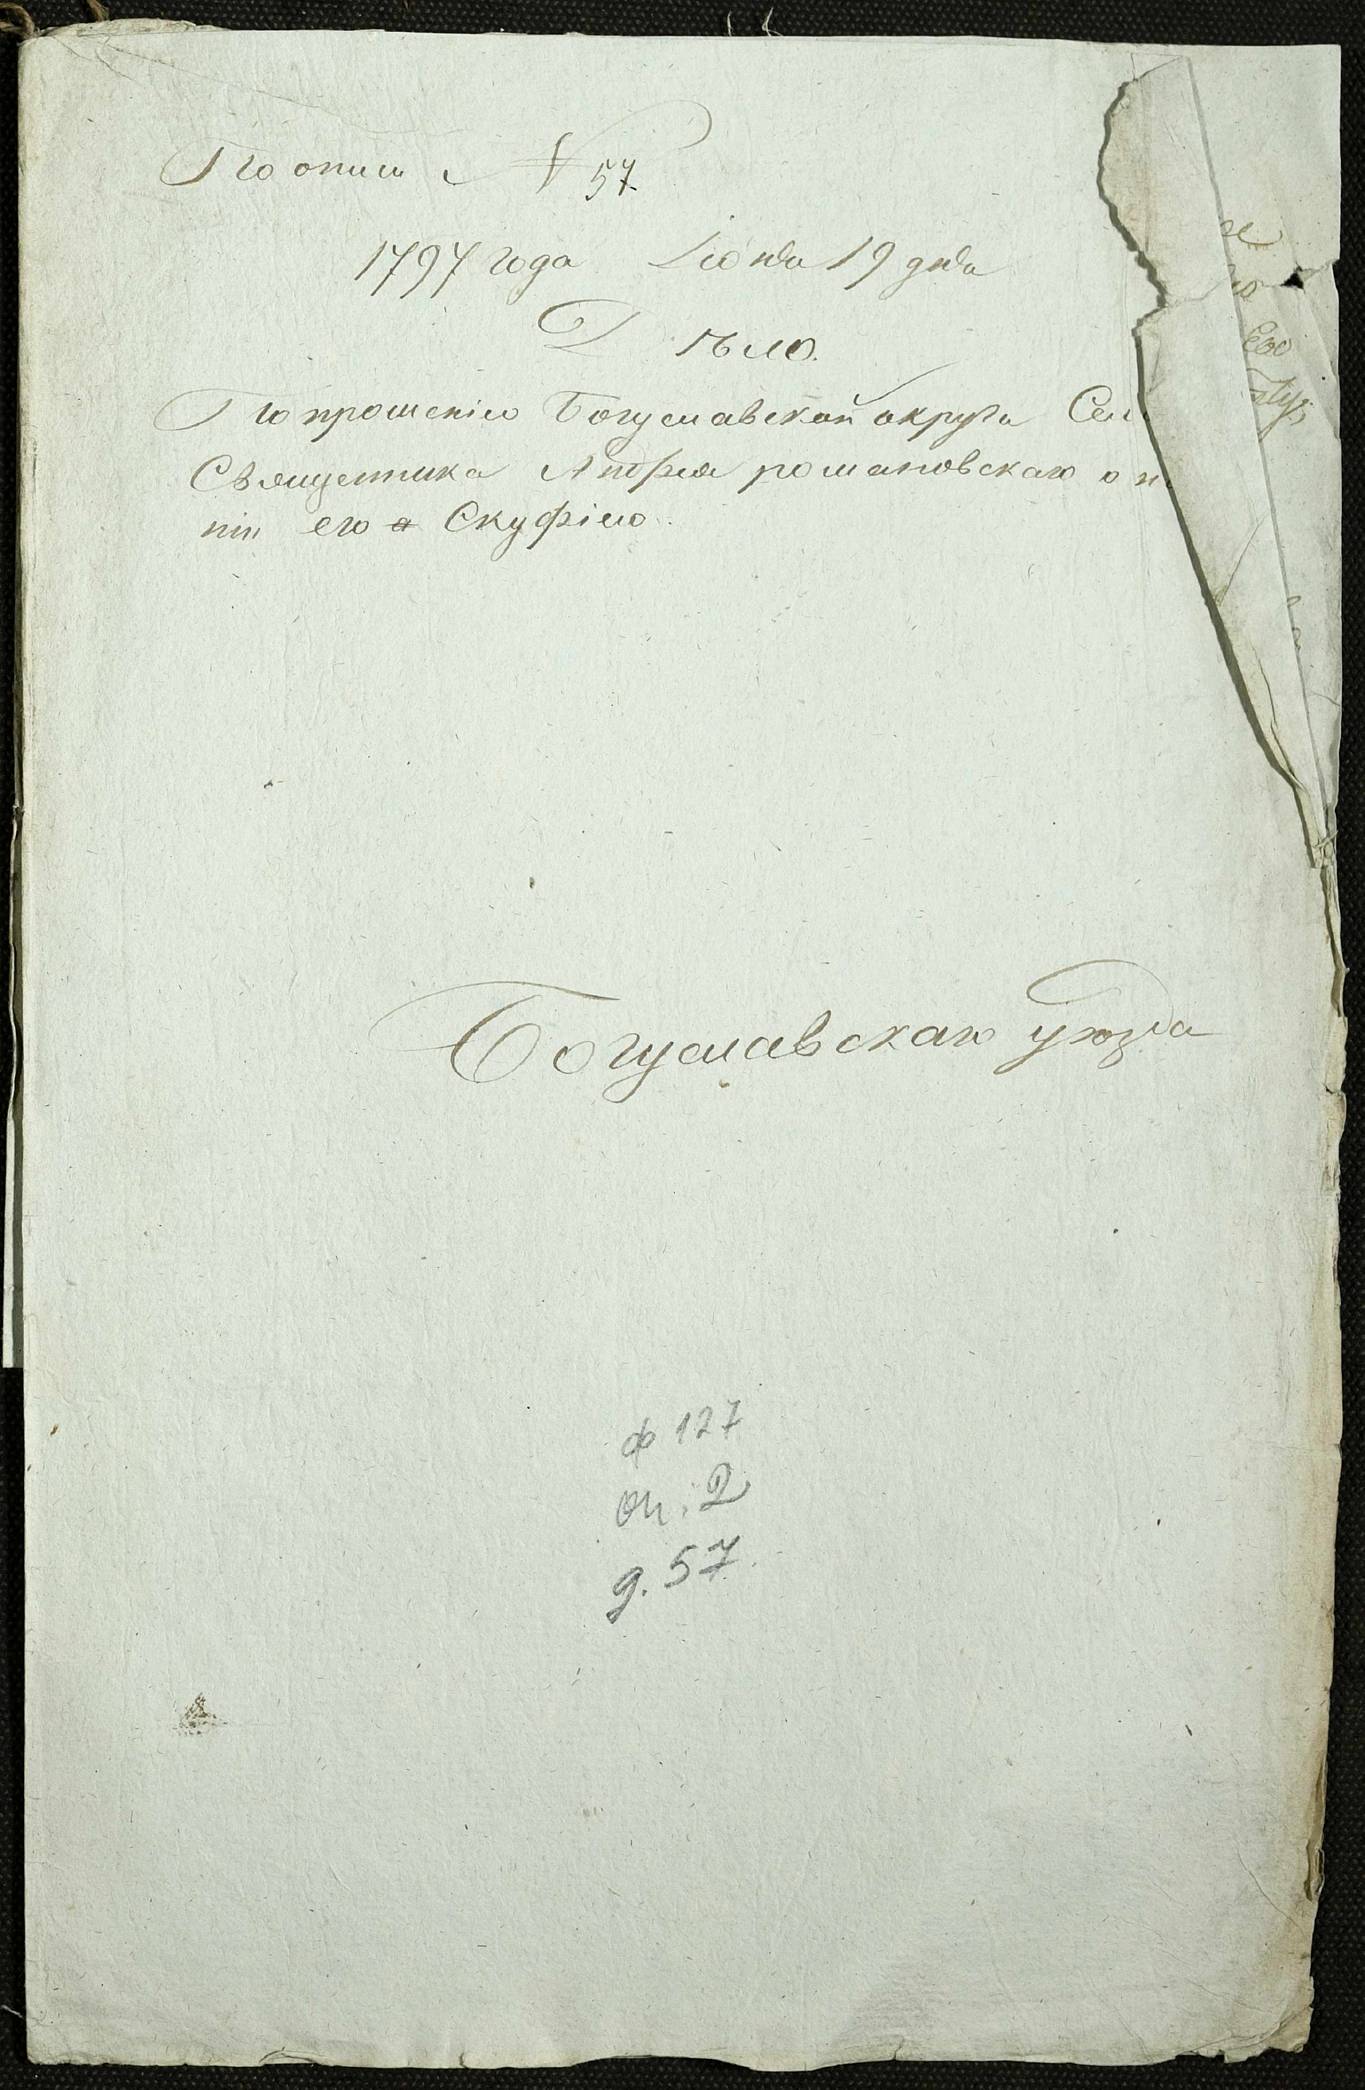 По описи № 57.
1797 года Iюня 19 дня
Дѣло.
По прошенію Богуславской округи Сел
Священника Андрея романовскаго о н
ніи его Скуфіею.
Богуславскаго уѣзда
ф 127
оп. 2
д. 57.